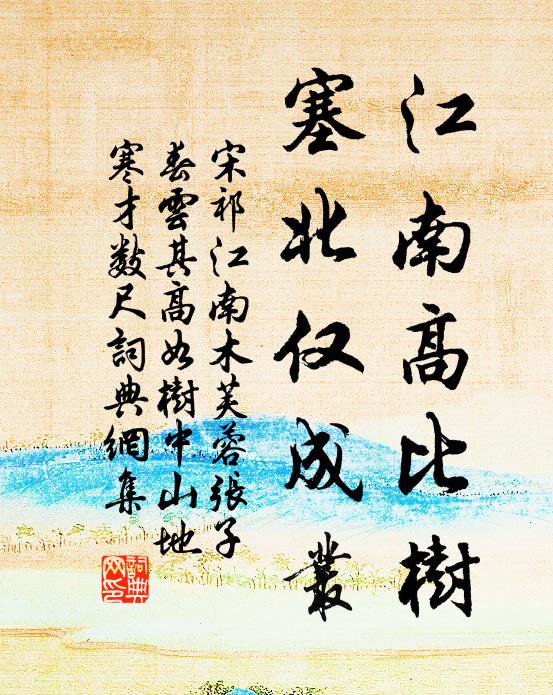 江南高比樹
塞北仅成叢
宋祁江南木芙蓉張子
春雲其高如樹中山地
寒才数尺詞典網集
詞典
网印